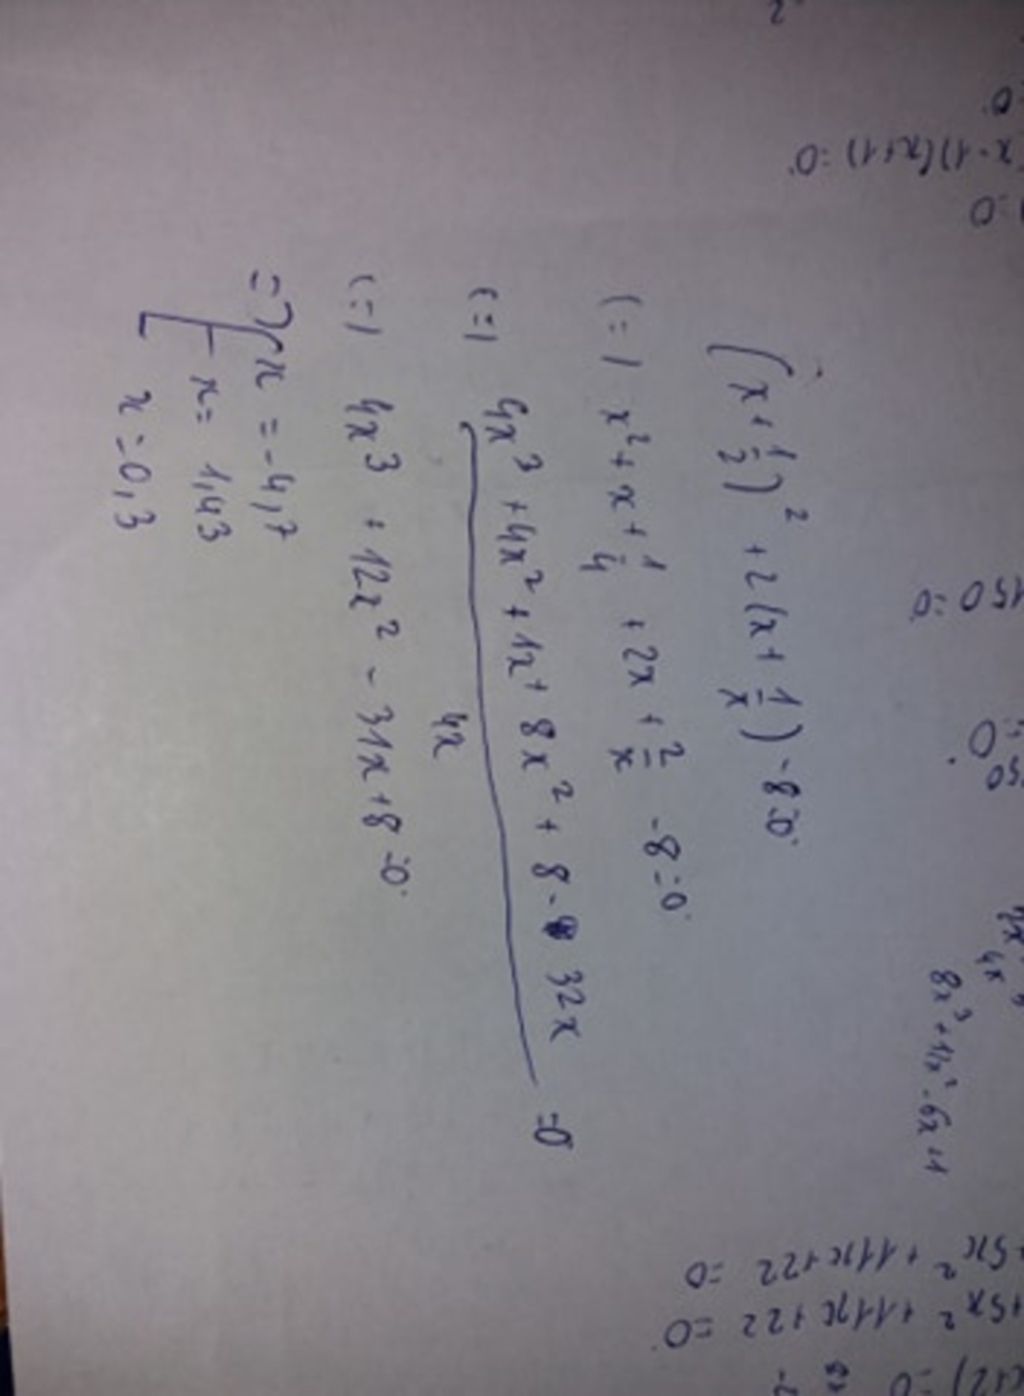 (x+1/2)² + 2(x+1/x) -8=0
(=) x² + x + 1/4 + 2x + 2/x -8=0
(=) 4x³ + 4x² + 1x + 8x² + 8 - 32x =0
4x
(=) 4x³ + 12x² - 31x +8=0
=> x = -4,7
x = 1,43
x = 0,3
8x³ + 11x² - 6x +1
4x
150 =0
x-1)(x+1) =0
=0
5x² + 11x + 22 =0
+5x² + 11x + 22 =0
=0